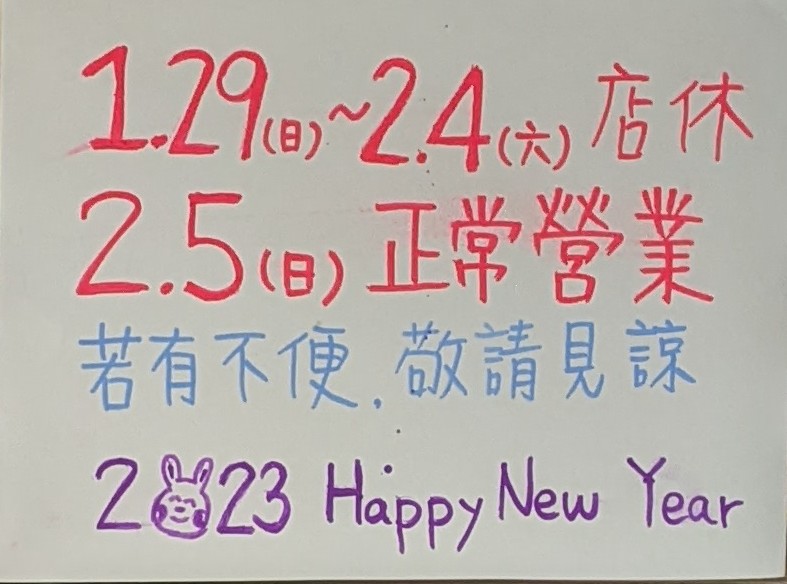 1.29(日)~2.4(六)店休
2.5(日)正常營業
若有不便,敬請見諒
2023 Happy New Year